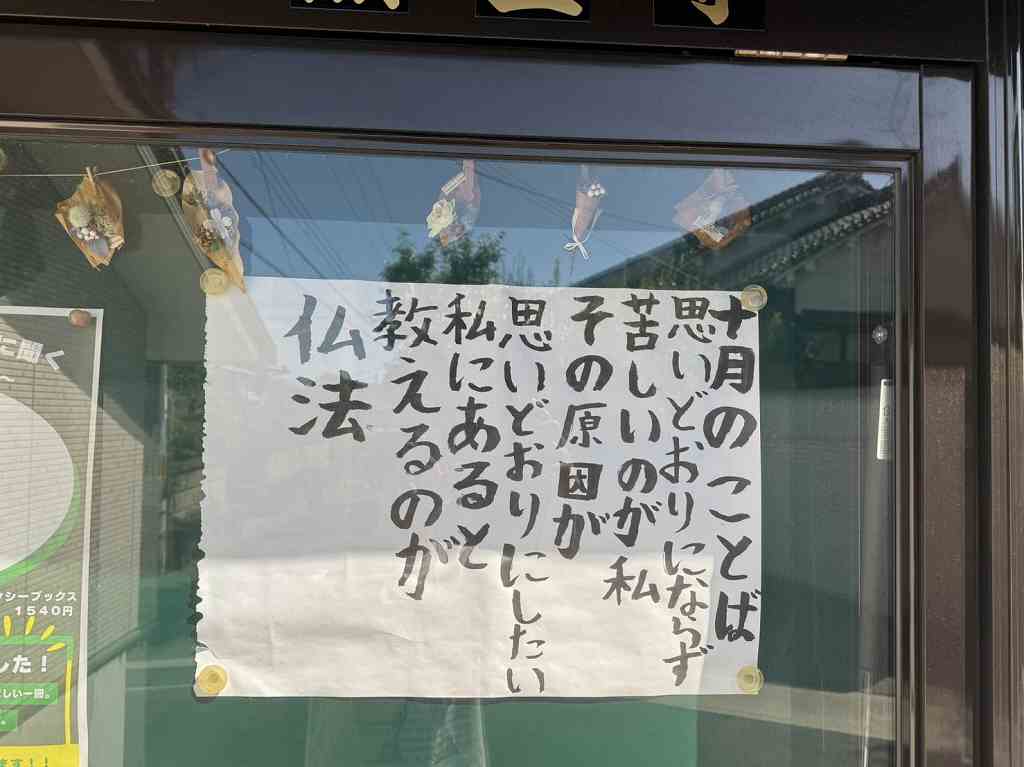 十月のことば
思いどおりにならず
苦しいのが私
その原因が
思いどおりにしたい
私にあると
教えるのが
仏法
シーブックス
1540円
した！
しい一冊。
ます！！